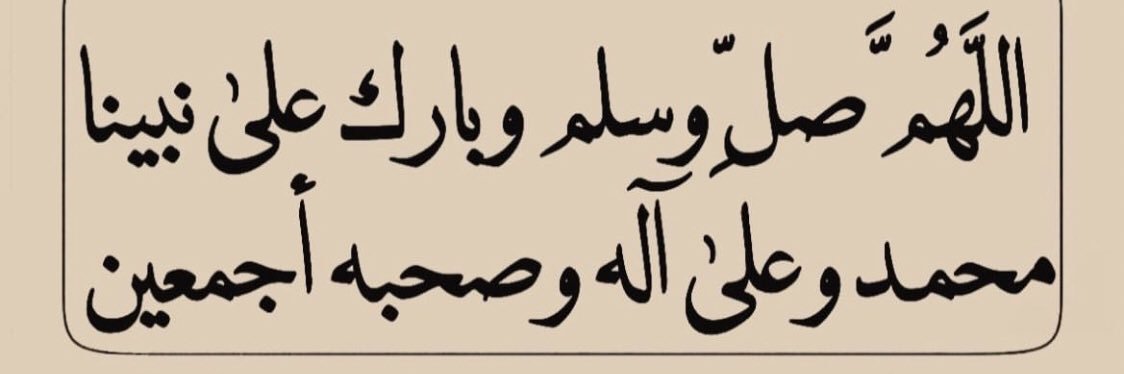 اللَّهُمَّ صلِّ وسلم وبارك علىٰ نبينا
محمد وعلىٰ آله وصحبه أجمعين